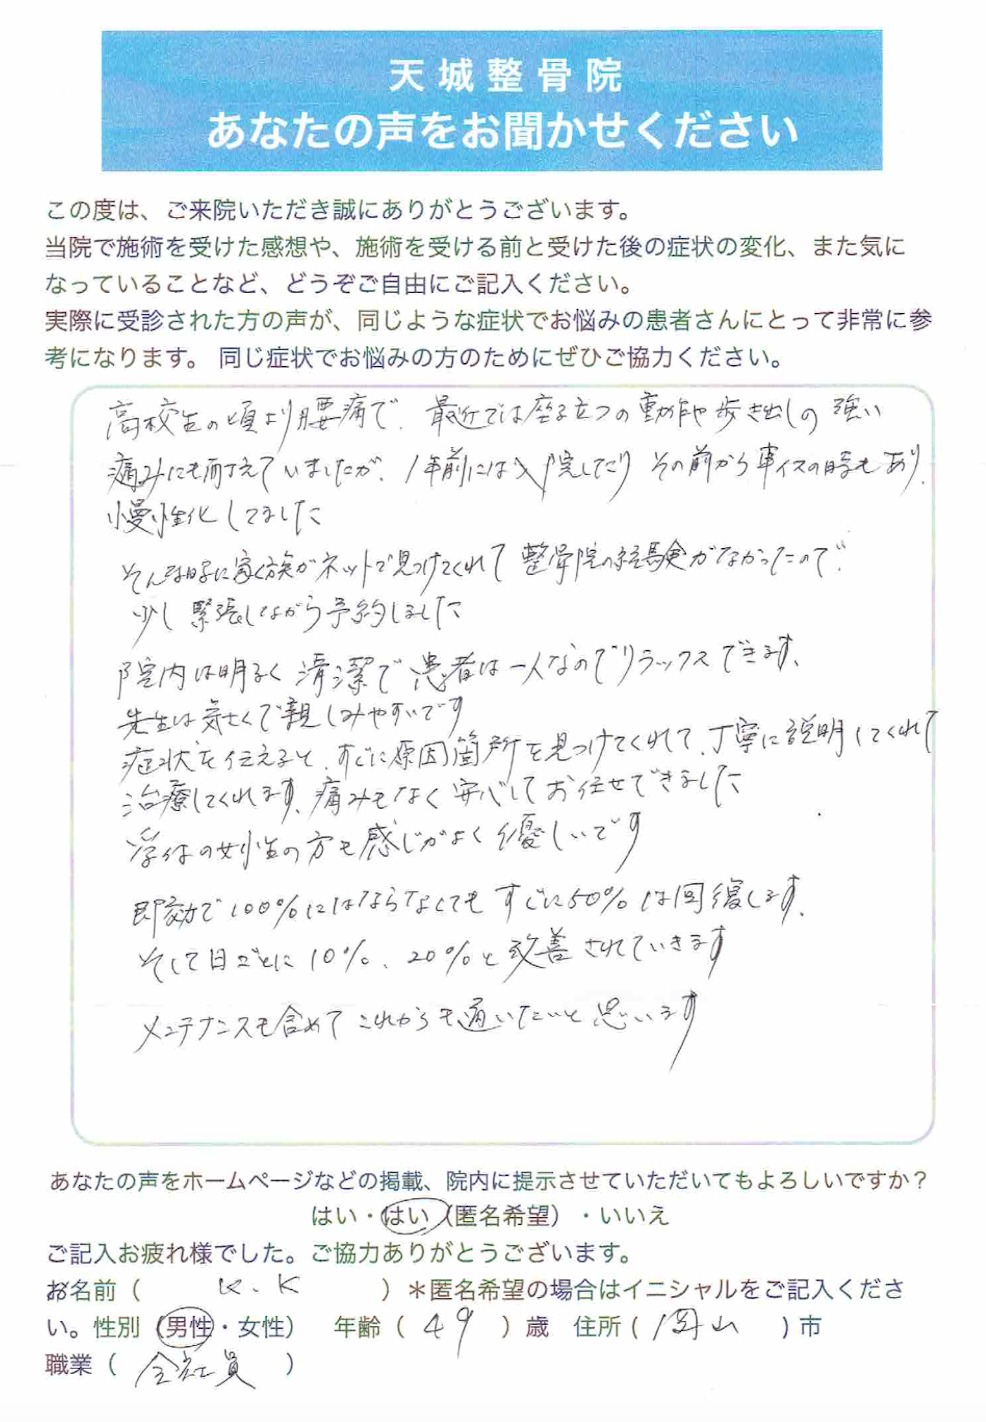 天城整骨院
あなたの声をお聞かせください
この度は、ご来院いただき誠にありがとうございます。
当院で施術を受けた感想や、施術を受ける前と受けた後の症状の変化、また気に
なっていることなど、どうぞご自由にご記入ください。
実際に受診された方の声が、同じような症状でお悩みの患者さんにとって非常に参
考になります。 同じ症状でお悩みの方のためにぜひご協力ください。
高校生の頃より腰痛で、最近では座る立つの動作や歩き出しの強い
痛みにも耐えていましたが、1年前には入院したり その前から車イスの時もあり、
慢性化してました
そんな時に家族がネットで見つけてくれて 整骨院の経験がなかったので、
少し緊張しながら予約しました
院内は明るく 清潔で 患者は一人なのでリラックスできます、
先生は気さくで親しみやすいです
症状を伝えると、すぐに原因箇所を見つけてくれて、丁寧に説明してくれて
治療してくれます、痛みもなく 安心して お任せできました
受付の女性の方も感じがよく 優しいです
即効で100%にはならなくても すぐに50%は回復します、
そして日ごとに 10%、20%と改善されていきます
メンテナンスも含めて これからも通いたいと思います
あなたの声をホームページなどの掲載、院内に提示させていただいてもよろしいですか?
はい・はい(匿名希望)・いいえ
ご記入お疲れ様でした。ご協力ありがとうございます。
お名前( K.K )＊匿名希望の場合はイニシャルをご記入くださ
い。性別(男性・女性) 年齢( 49 )歳 住所( 岡山 )市
職業( 会社員 )